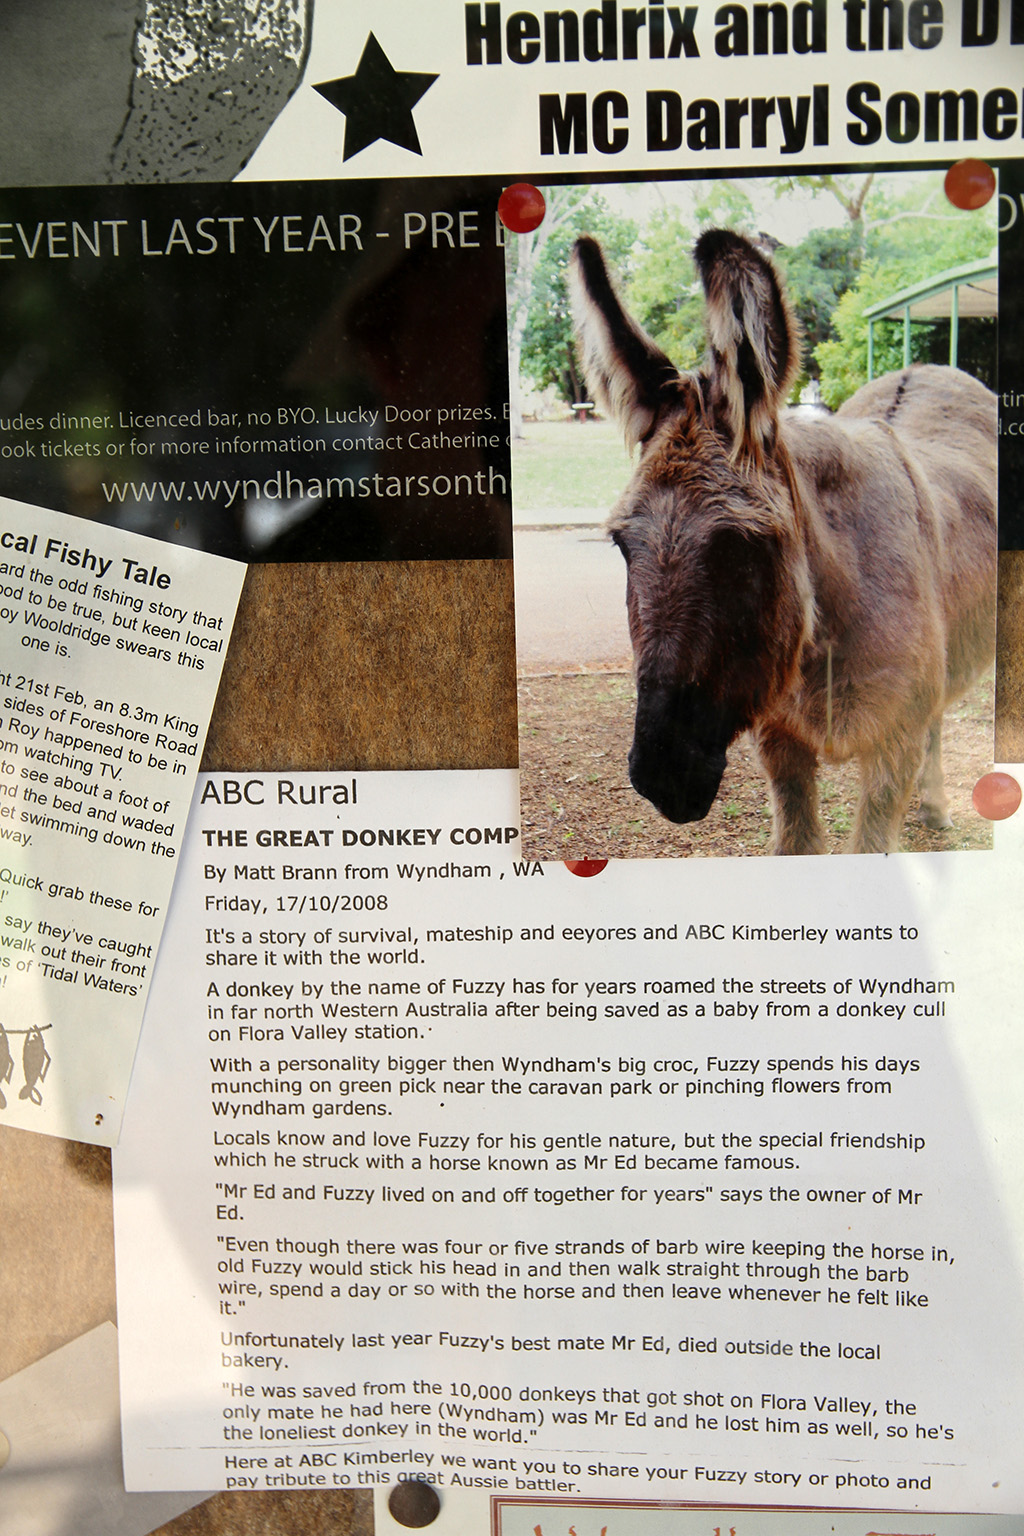 Hendrix and the
MC Darryl
EVENT LAST YEAR - PRE
dinner. Licenced bar, no BYO. Lucky Door prizes.
tickets or for more information contact Catherine
www.wyndhamstarsonth
Fishy Tale
the odd fishing story that
to be true, but keen local
Wooldridge swears this
one is.
21st Feb, an 8.3m King
sides of Foreshore Road
Roy happened to be in
watching TV.
to see about a foot of
the bed and waded
swimming down the
way.
Quick grab these for
!'
say they've caught
walk out their front
of 'Tidal Waters'
!
ABC Rural
THE GREAT DONKEY COMP
By Matt Brann from Wyndham , WA
Friday, 17/10/2008
It's a story of survival, mateship and eeyores and ABC Kimberley wants to
share it with the world.
A donkey by the name of Fuzzy has for years roamed the streets of Wyndham
in far north Western Australia after being saved as a baby from a donkey cull
on Flora Valley station.
With a personality bigger then Wyndham's big croc, Fuzzy spends his days
munching on green pick near the caravan park or pinching flowers from
Wyndham gardens.
Locals know and love Fuzzy for his gentle nature, but the special friendship
which he struck with a horse known as Mr Ed became famous.
"Mr Ed and Fuzzy lived on and off together for years" says the owner of Mr
Ed.
"Even though there was four or five strands of barb wire keeping the horse in,
old Fuzzy would stick his head in and then walk straight through the barb
wire, spend a day or so with the horse and then leave whenever he felt like
it."
Unfortunately last year Fuzzy's best mate Mr Ed, died outside the local
bakery.
"He was saved from the 10,000 donkeys that got shot on Flora Valley, the
only mate he had here (Wyndham) was Mr Ed and he lost him as well, so he's
the loneliest donkey in the world."
Here at ABC Kimberley we want you to share your Fuzzy story or photo and
pay tribute to this great Aussie battler.